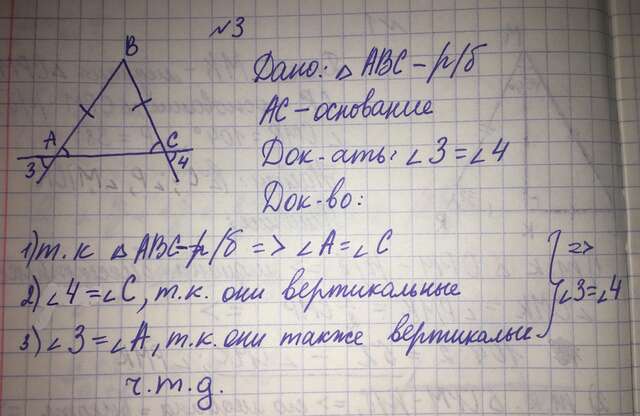 №3
B
A
C
3
4
Дано: △ABC – р/б
AC – основание
Док-ать: ∠3 = ∠4
Док-во:
1) т.к △ABC – р/б => ∠A = ∠C
2) ∠4 = ∠C, т.к. они вертикальные
3) ∠3 = ∠A, т.к. они также вертикалые
=>
∠3 = ∠4
ч.т.д.